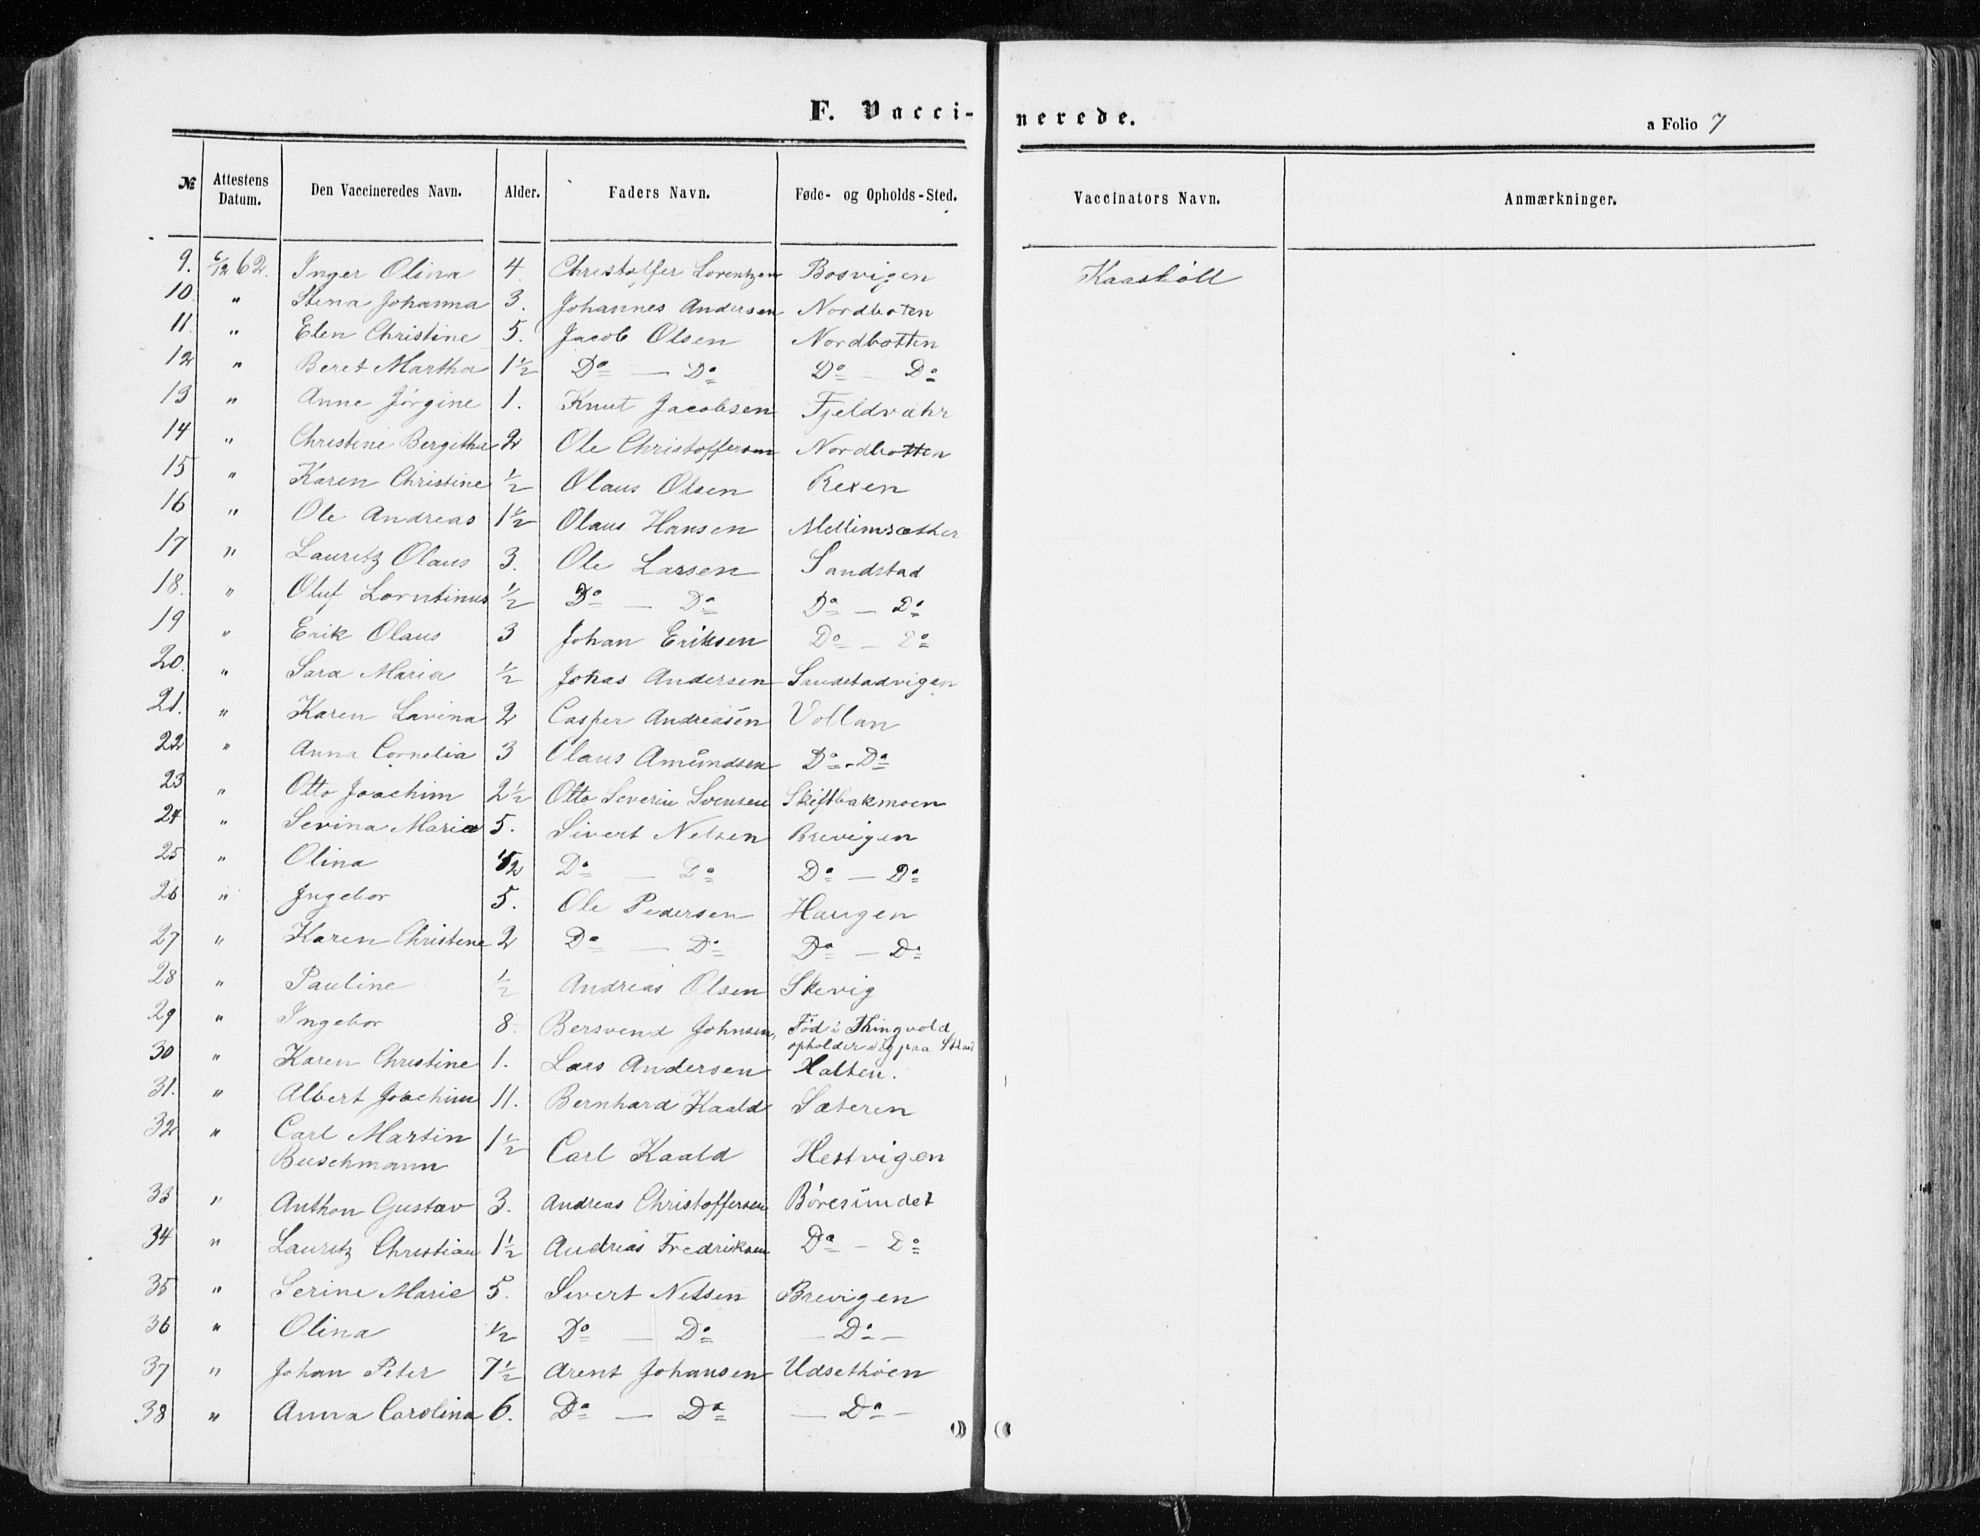 F. Vaccinerede.
a Folio 7
№ Attestens Datum. Den Vaccineredes Navn. Alder. Faders Navn. Føde- og Opholds-Sted. Vaccinators Navn. Anmærkninger.
9. 6/12 62. Inger Olina 4 Christoffer Lorentzen Bosvigen
10 " Stina Johanna 3. Johannes Andersen Nordboten
11. " Elen Christine 5. Jacob Olsen Nordbotten
12 " Beret Martha 1½ Do — Do Do — Do
13 " Anne Jørgine 1. Knut Jacobsen Fjeldvæhr
14 " Christine Bergitha 2 Ole Christoffersen Nordbotten
15 " Karen Christine ½ Olaus Olsen Rexen
16 " Ole Andreas 1½ Olaus Hansen Mellimsæther
17 " Lauritz Olaus 3. Ole Larsen Sandstad
18. " Oluf Lorntinus ½ Do — Do Do — Do
19 " Erik Olaus 3 Johan Eriksen Do — Do
20. " Sara Maria ½ Johas Andersen Sandstadvigen
21. " Karen Lavina 2 Casper Andreasen Vollan
22 " Anna Cornelia 3 Olaus Amundsen Do - Do
23 " Otto Joachim 2½ Otto Severin Svensen Skiftbakmoen
24 " Sevina Maria 5. Sivert Nelsen Brevigen
25 " Olina ½ Do — Do Do — Do
26 " Ingebor 5. Ole Pedersen Haugen
27 " Karen Christine 2 Do — Do Do — Do
28 " Pauline ½ Andreas Olsen Skevig
29 " Ingebor 8. Bersvend Johnsen, Fød i Thingvold
opholder sig paa
30 " Karen Christine 1. Lars Andersen Halten.
31. " Albert Joachim 11. Bernhard Kaald Sæteren
32 " Carl Martin
Buschmann 1½ Carl Kaald Hestvigen
33 " Anthon Gustav 3. Andreas Christoffersen Børesundet
34 " Lauritz Christian 1½ Andreas Fredriksen Do — Do
35 " Serine Marie 5. Sivert Nelsen Brevigen
36 " Olina ½ Do — Do — Do —
37 " Johan Peter 7½ Arent Johansen Udsethøen
38 " Anna Carolina 6. Do — Do — Do —
Kaasbøll